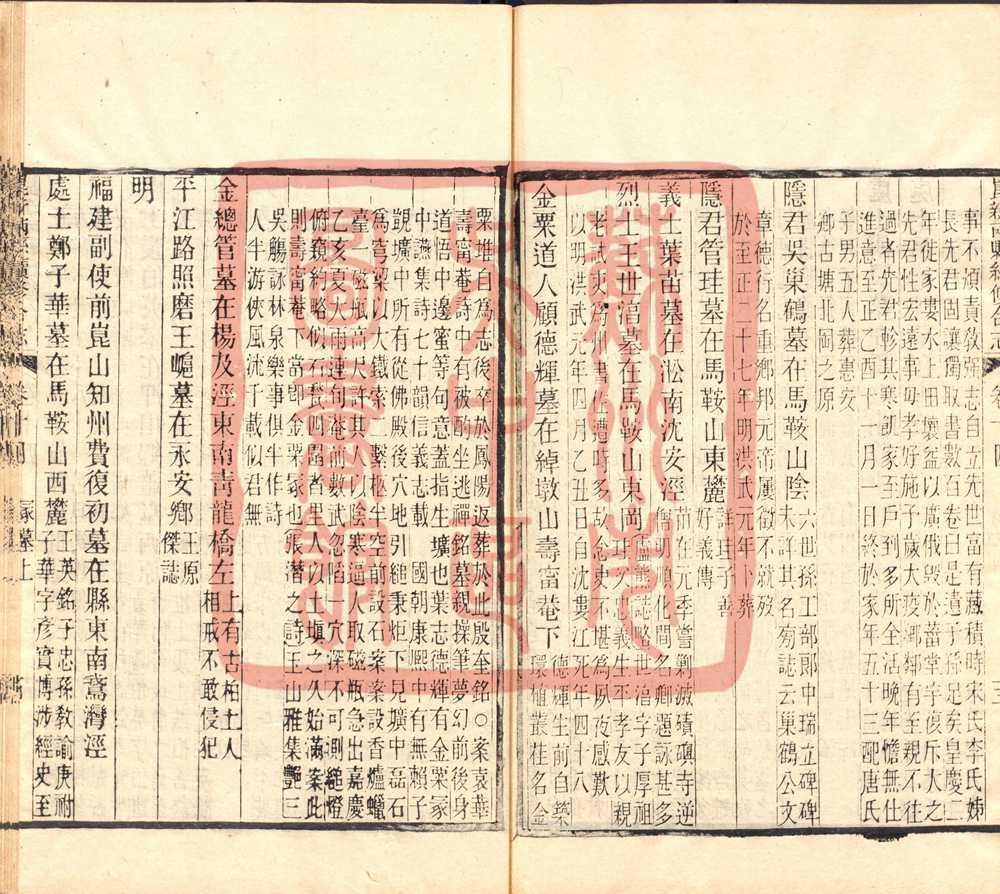 事不煩責敎强志自立先世富有藏積時宋氏李氏姊
長先君固讓獨取書數百卷曰是遺子孫足矣皇慶二
年徙家婁水上田壞益以廣俄毀於菑堂宇復斥大之
先君性宏遠事毋孝好施予歲大疫鄉鄰有至親不往
過者先君軫其寒飢家至戶到多所全活晚年憺無仕
進意至至正乙酉十一月一日終於家年五十三配唐氏
子男五人葬惠安
鄉古塘北岡之原
隱君吳巢鶴墓在馬鞍山陰六世孫工部郎中瑞立碑碑
末詳其名菊誌云巢鶴公文
章德行名重鄉邦元帝屢徵不就歿
於至正二十七年明洪武元年卜葬
隱君管珪墓在馬鞍山東麓詳珪子善
好義傳
義士葉苗墓在淞南沈安涇苗在元季嘗剿滅磧礇寺逆
僧明順化間名卿題詠甚多
烈士王世㴶墓在馬鞍山東岡
以明洪武元年四月乙丑日自沈婁江死年四十八
金粟道人顧德輝墓在綽墩山壽甯菴下德輝生前自築
環植叢桂名金
粟堆自爲志後卒於鳳陽返葬於此殷奎銘○案袁華
壽甯庵詩中有被酌坐逃禪銘墓親操筆夢幻前後身
道悟中邊蜜等句意蓋指生壙也葉志德輝有金粟冢
中讌集詩七十韻信義志載 國朝康熙中有無賴子
覬壙中所有從佛殿後穴地引縋秉炬下見壙中磊石
爲穹梁以大鐵索二繫柩半空前設石案案設香爐蠟
臺磁瓶高尺許其人以陰寒逼人取磁瓶急出嘉慶
乙亥夏大雨連旬庵前數武忽陷一穴深不可測縋燈
俯窺約略似石甃四圍者里人以土塡之久始滿案此
則壽甯庵下當卽金粟冢也張潛之詩玉山雅集艷三
吳觴詠林泉樂事俱半作詩
人半游俠風流千載似君無
金總管墓在楊及涇東南靑龍橋左上有古柏土人
相戒不敢侵犯
平江路照磨王㠠墓在永安鄉王原
傑誌
明
福建副使前崑山知州費復初墓在縣東南鴦灣涇
處士鄭子華墓在馬鞍山西麓王英銘子忠孫敎諭庚祔
子華字彥實博涉經史至